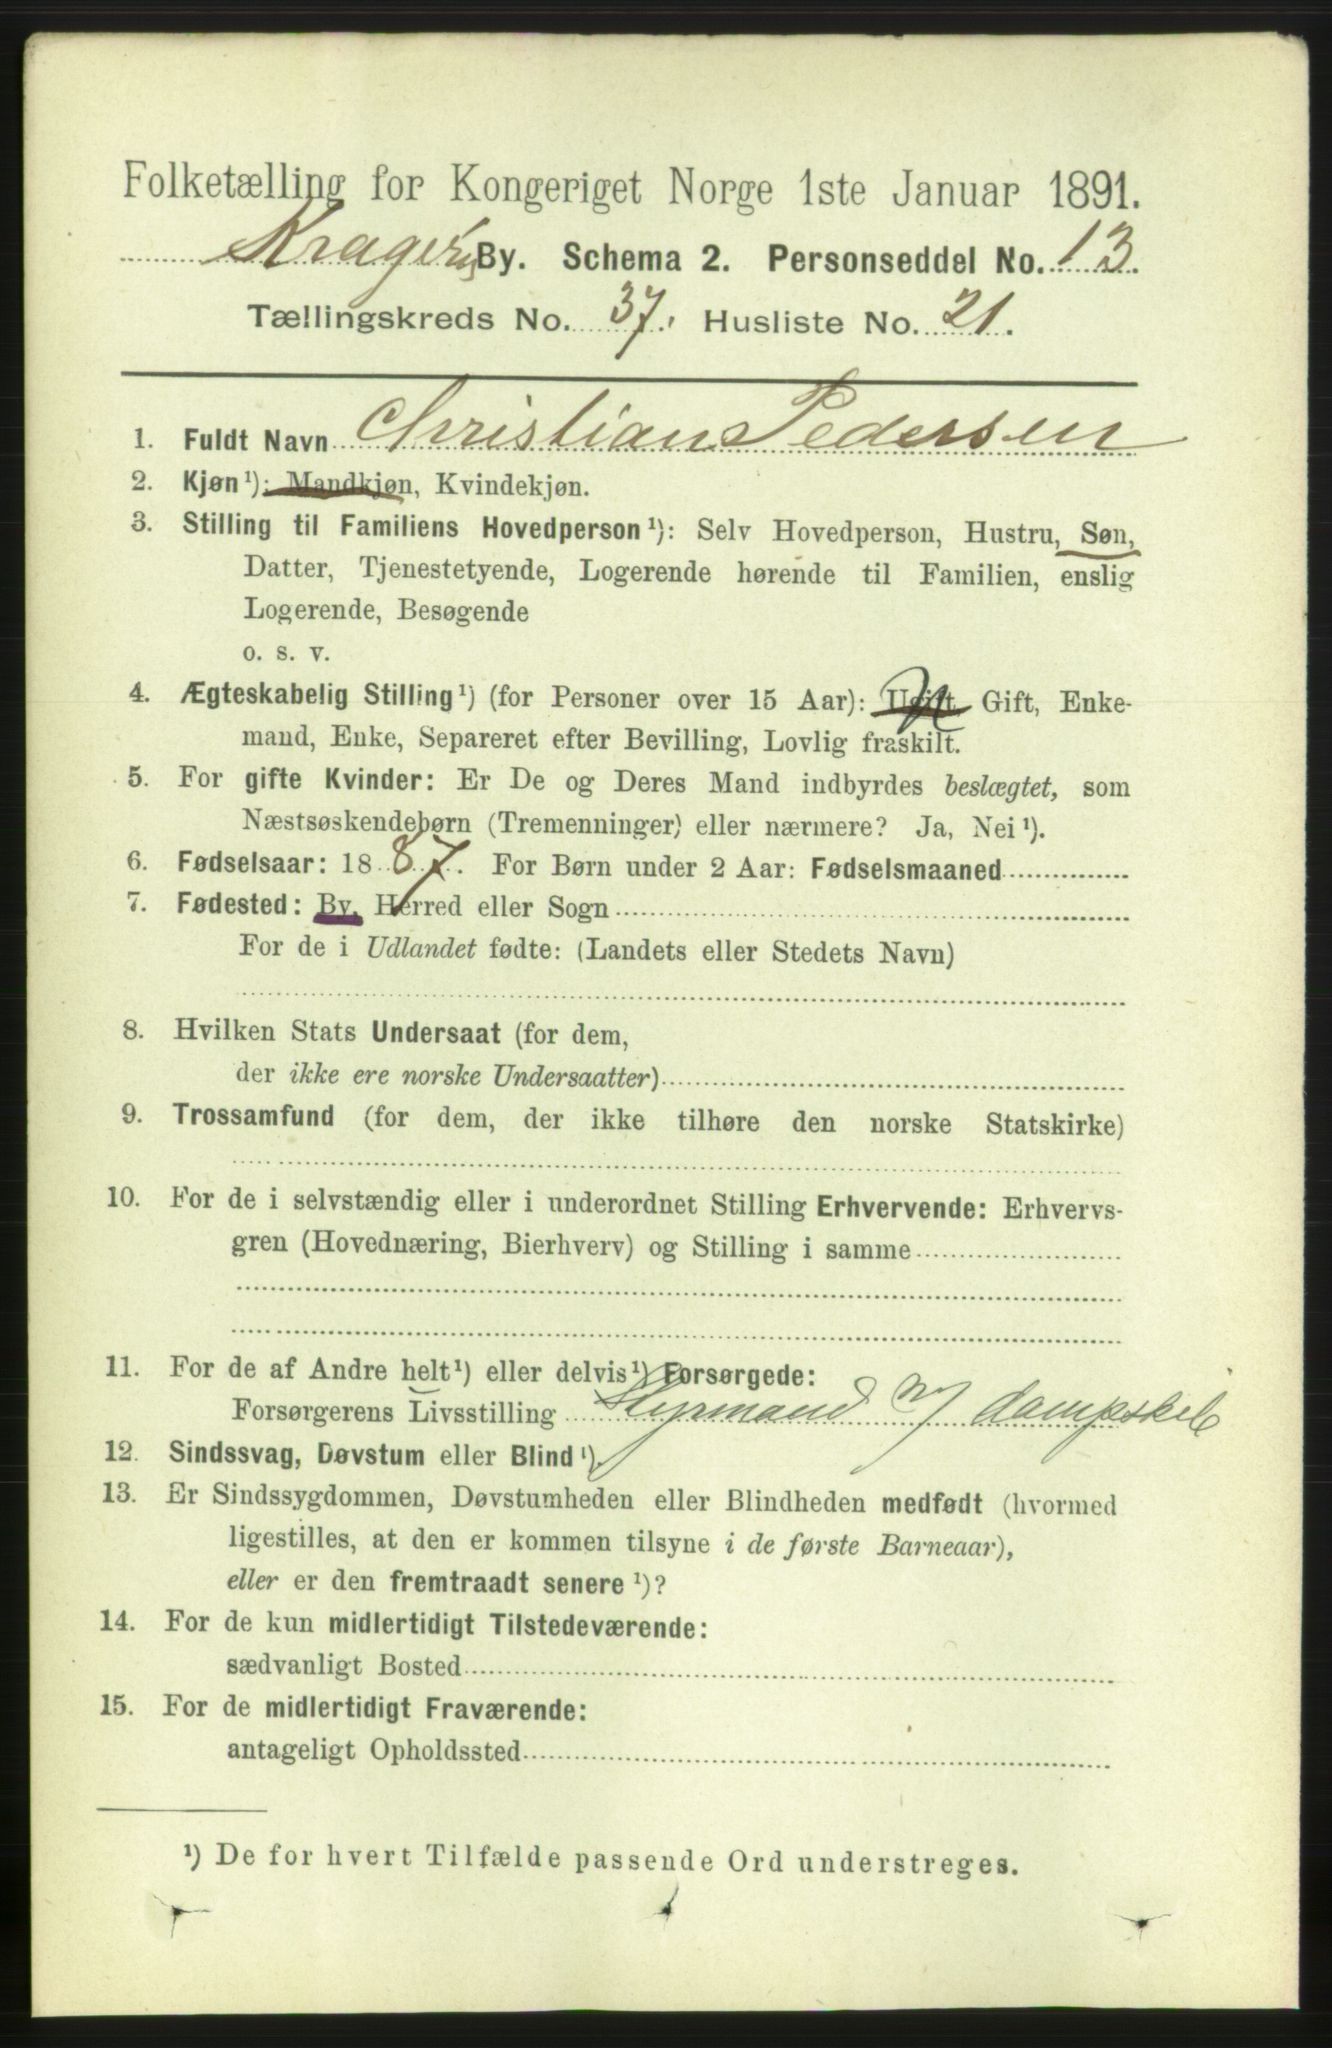 Folketælling for Kongeriget Norge 1ste Januar 1891.
Kragerø By. Schema 2. Personseddel No. 13.
Tællingskreds No. 37. Husliste No. 21.
1. Fuldt Navn Christian Pedersen
2. Kjøn¹): Mandkjøn, Kvindekjøn.
3. Stilling til Familiens Hovedperson¹): Selv Hovedperson, Hustru, Søn,
Datter, Tjenestetyende, Logerende hørende til Familien, enslig
Logerende, Besøgende
o. s. v.
4. Ægteskabelig Stilling¹) (for Personer over 15 Aar): Ugift, Gift, Enke-
mand, Enke, Separeret efter Bevilling, Lovlig fraskilt.
5. For gifte Kvinder: Er De og Deres Mand indbyrdes beslægtet, som
Næstsøskendebørn (Tremenninger) eller nærmere? Ja, Nei¹).
6. Fødselsaar: 1887. For Børn under 2 Aar: Fødselsmaaned
7. Fødested: By, Herred eller Sogn
For de i Udlandet fødte: (Landets eller Stedets Navn)
8. Hvilken Stats Undersaat (for dem,
der ikke ere norske Undersaatter)
9. Trossamfund (for dem, der ikke tilhøre den norske Statskirke)
10. For de i selvstændig eller i underordnet Stilling Erhvervende: Erhvervs-
gren (Hovednæring, Bierhverv) og Stilling i samme
11. For de af Andre helt¹) eller delvis¹) Forsørgede:
Forsørgerens Livsstilling Styrmand dampskib
12. Sindssvag, Døvstum eller Blind¹).
13. Er Sindssygdommen, Døvstumheden eller Blindheden medfødt (hvormed
ligestilles, at den er kommen tilsyne i de første Barneaar),
eller er den fremtraadt senere¹)?
14. For de kun midlertidigt Tilstedeværende:
sædvanligt Bosted
15. For de midlertidigt Fraværende:
antageligt Opholdssted
¹) De for hvert Tilfælde passende Ord understreges.